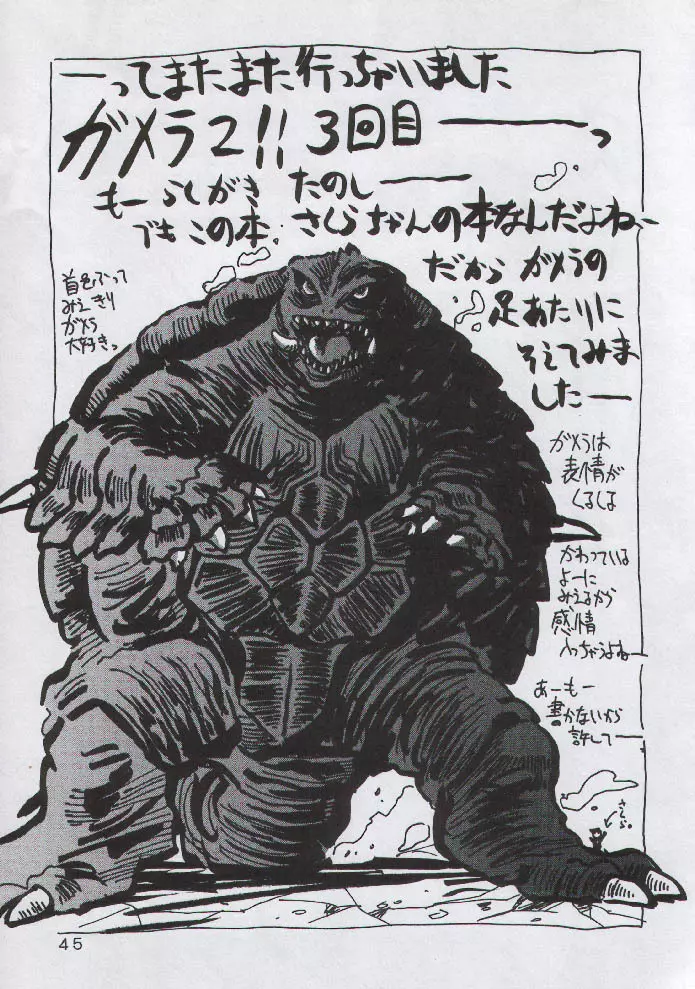 ーってまたまた行っちゃいました
ガメラ2!! 3回目ーーっ
もーらくがき たのしーー
でもこの本 さくらちゃんの本なんだよねー
だから ガメラの
足あたりに
そえてみま
したー
首をぶって
みえきり
ガメラ
大好きっ
ガメラは
表情が
くるくる
かわっている
よーに
みえるから
感情
入っちゃうよねー
あーもー
書かないから
許してー
さくら
45